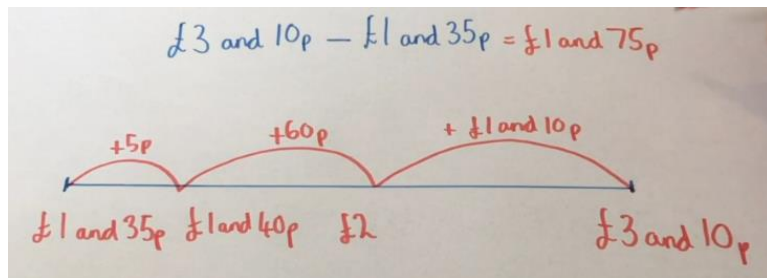 £3 and 10p – £1 and 35p = £1 and 75p
+5p +60p + £1 and 10p
£1 and 35p £1 and 40p £2 £3 and 10p